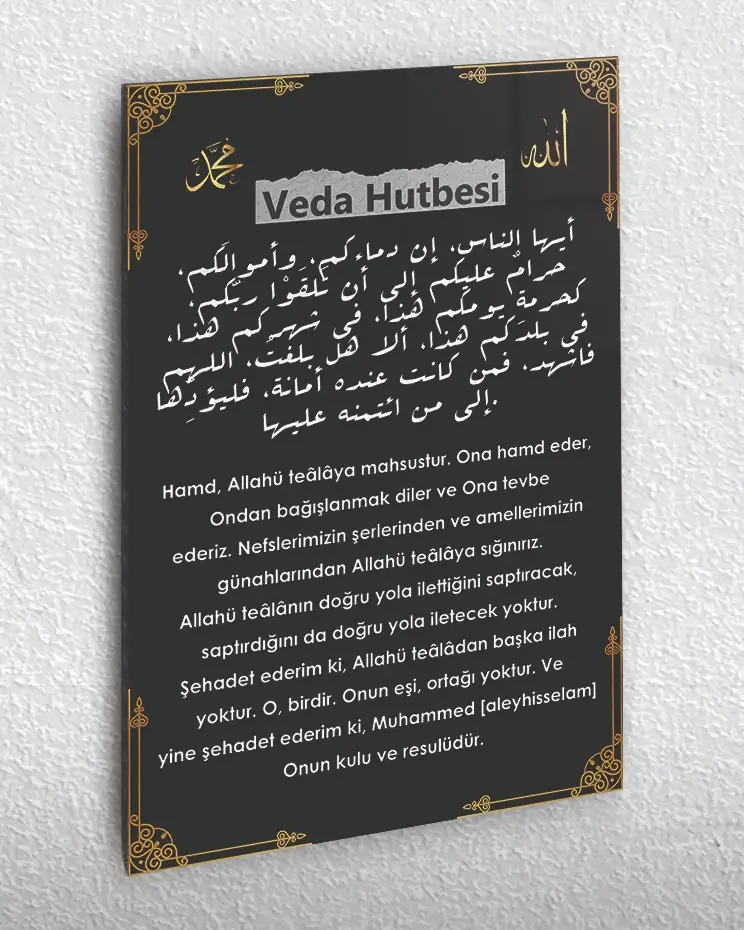 محمد
الله
Veda Hutbesi
أيها الناس، إن دماءكم، وأموالَكم،
حرامٌ عليكم إلى أن تَلقَوْا ربَّكم،
كحرمة يومكم هذا، في شهركم هذا،
في بلدكم هذا، ألا هل بلغتُ، اللهم
فاشهد، فمن كانت عنده أمانة، فليؤدِّها
إلى من ائتمنه عليها.
Hamd, Allahü teâlâya mahsustur. Ona hamd eder,
Ondan bağışlanmak diler ve Ona tevbe
ederiz. Nefslerimizin şerlerinden ve amellerimizin
günahlarından Allahü teâlâya sığınırız.
Allahü teâlânın doğru yola ilettiğini saptıracak,
saptırdığını da doğru yola iletecek yoktur.
Şehadet ederim ki, Allahü teâlâdan başka ilah
yoktur. O, birdir. Onun eşi, ortağı yoktur. Ve
yine şehadet ederim ki, Muhammed [aleyhisselam]
Onun kulu ve resulüdür.